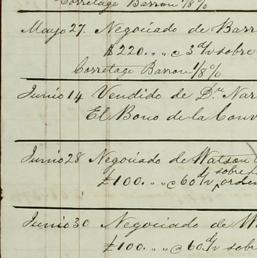 Corretage Barron 1/8 %
Mayo 27. Negociado de Barr
£220. „ „ @ 3 d/v sobre
Corretage Barron 1/8 %
Junio 14 Vendido de Dn. Nar
El Bono de la Conv
Junio 28 Negociado de Watson
sobre L
£100. „ „ @ 60 d/v
Junio 30 Negociado de W
£100. „ „ @ 60 d/v sobr